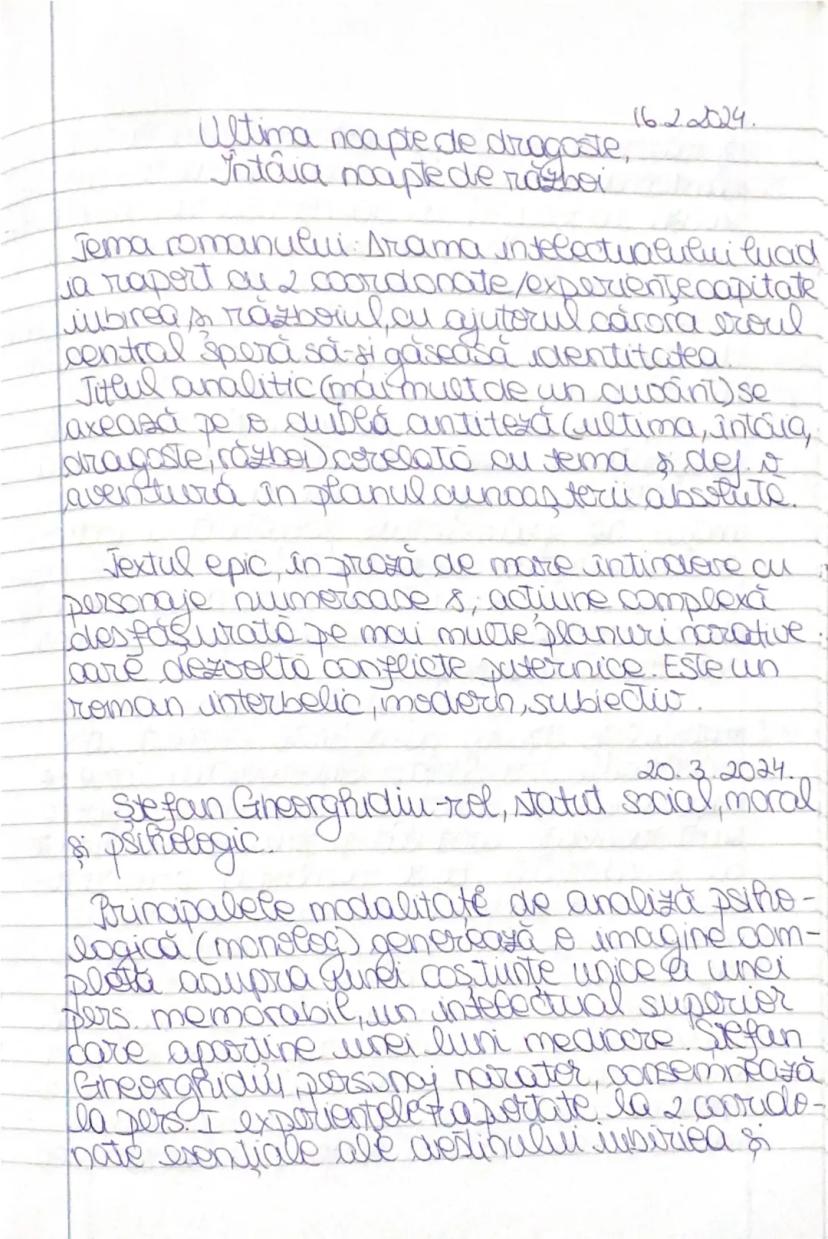 16.2.2024.
Ultima noapte de dragoste,
Întâia noapte de război
Tema romanului: Drama intelectualului lucid
în raport cu 2 coordonate/experiențe capitate
iubirea și războiul, cu ajutorul cărora eroul
central speră să-și găsească identitatea.
Titlul analitic (mai mult de un cuvânt) se
axează pe o dublă antiteză (ultima, întâia,
dragoste, război) corelată cu tema și def. o
aventură în planul cunoașterii absolute.
Textul epic, în proză de mare întindere cu
personaje numeroase și acțiune complexă
desfășurată pe mai multe planuri narative
care dezvoltă conflicte puternice. Este un
roman interbelic, modern, subiectiv.
20.3.2024.
Ștefan Gheorghidiu-rol, statut social, moral
și psihologic.
Principalele modalitate de analiză psiho-
logică (monolog) generează o imagine com-
pletă asupra unei coștiințe unice a unei
pers. memorabil, un intelectual superior
care aparține unei lumi mediocre. Ștefan
Gheorghidiu, personaj narator, consemnează
la pers. I experiențele raportate la 2 coordo-
nate esențiale ale destinului iubirea și